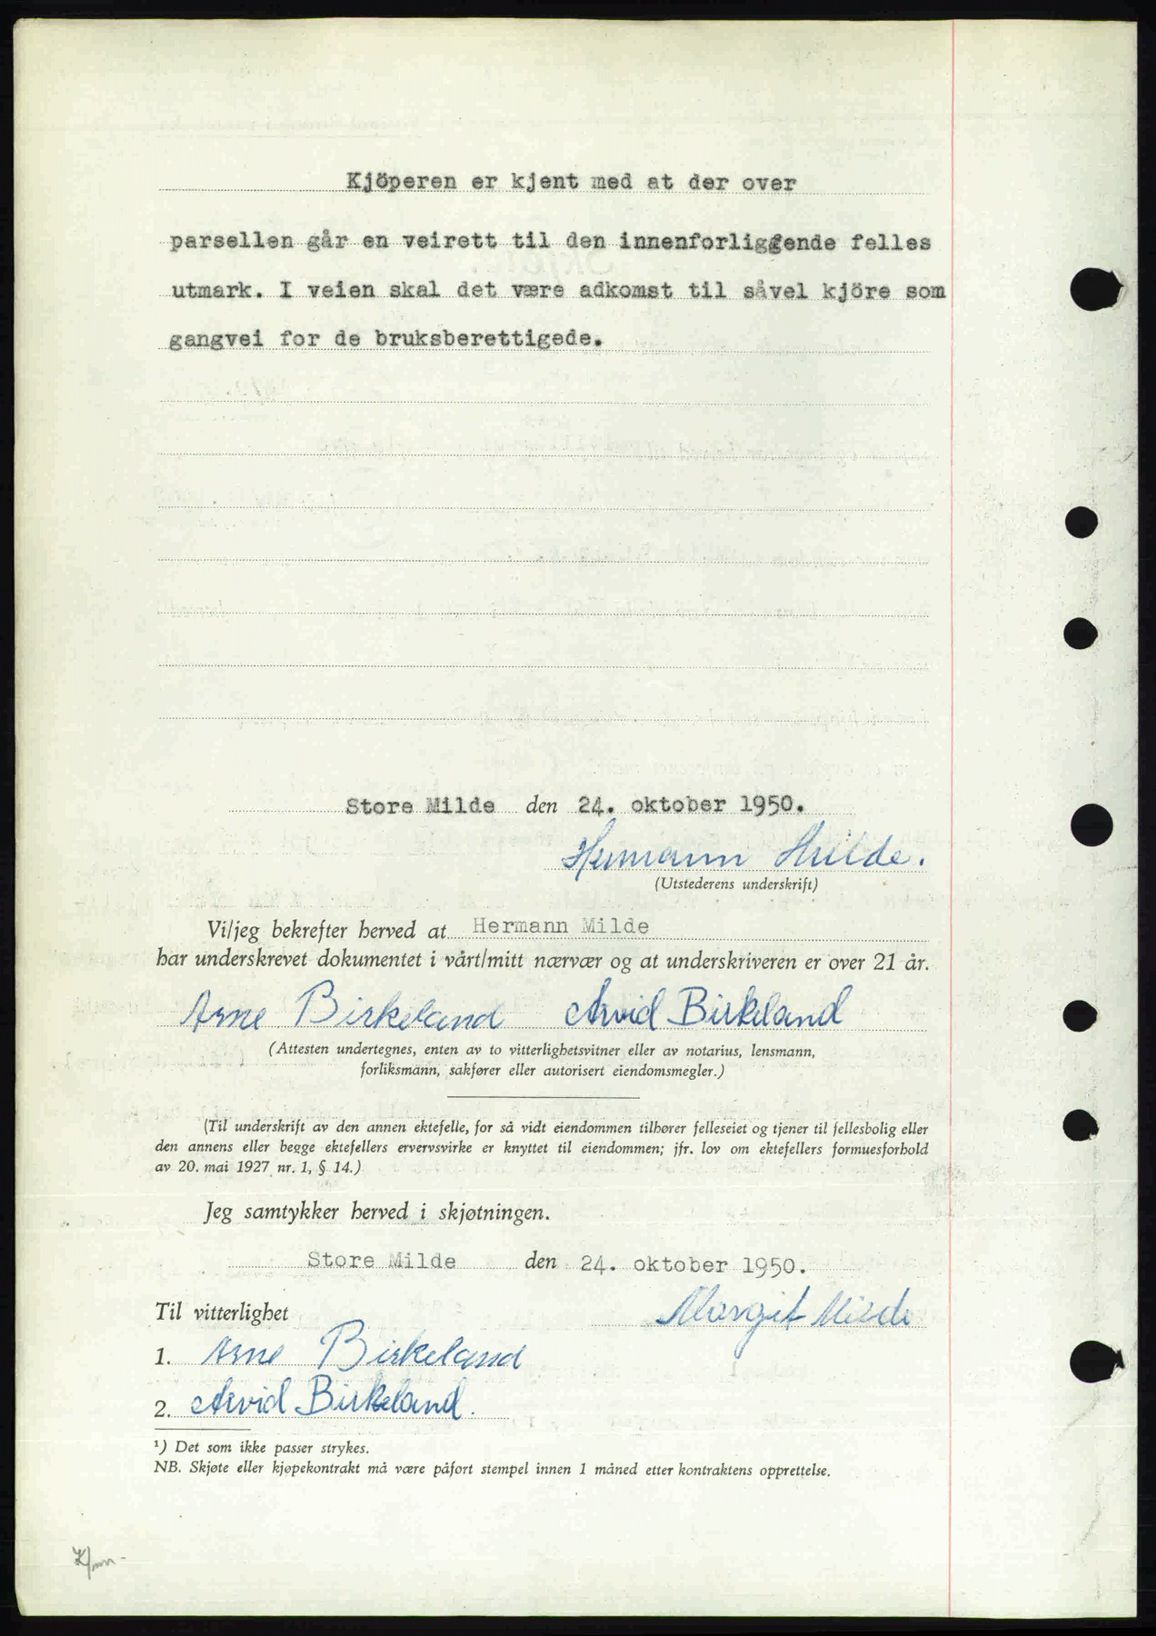 Kjöperen er kjent med at der over
parsellen går en veirett til den innenforliggende felles
utmark. I veien skal det være adkomst til såvel kjöre som
gangvei for de bruksberettigede.
Store Milde den 24. oktober 1950.
Hermann Milde.
(Utstederens underskrift)
Vi/jeg bekrefter herved at Hermann Milde
har underskrevet dokumentet i vårt/mitt nærvær og at underskriveren er over 21 år.
Arne Birkeland Arvid Birkeland
(Attesten undertegnes, enten av to vitterlighetsvitner eller av notarius, lensmann,
forliksmann, sakfører eller autorisert eiendomsmegler.)
(Til underskrift av den annen ektefelle, for så vidt eiendommen tilhører felleseiet og tjener til fellesbolig eller
den annens eller begge ektefellers ervervsvirke er knyttet til eiendommen; jfr. lov om ektefellers formuesforhold
av 20. mai 1927 nr. 1, § 14.)
Jeg samtykker herved i skjøtningen.
Store Milde den 24. oktober 1950.
Til vitterlighet Margit Milde
1. Arne Birkeland
2. Arvid Birkeland.
¹) Det som ikke passer strykes.
NB. Skjøte eller kjøpekontrakt må være påført stempel innen 1 måned etter kontraktens opprettelse.